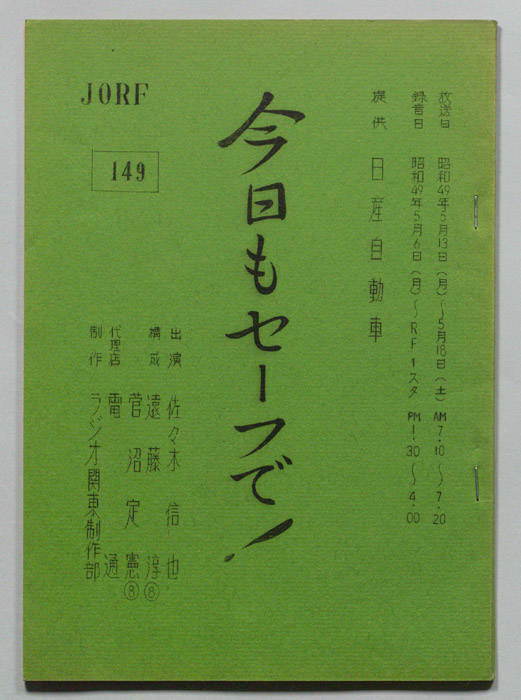 放送日 昭和49年5月13日(月)〜5月18日(土) AM 7・10 〜 7・20
録音日 昭和49年5月6日(月)〜RF1スタ PM 1・30 〜 4・00
提供 日産自動車
今日もセーフで!
JORF
149
出演 佐々木信也
構成 遠藤淳⑧
菅沼定憲⑧
代理店 電通
制作 ラジオ関東制作部